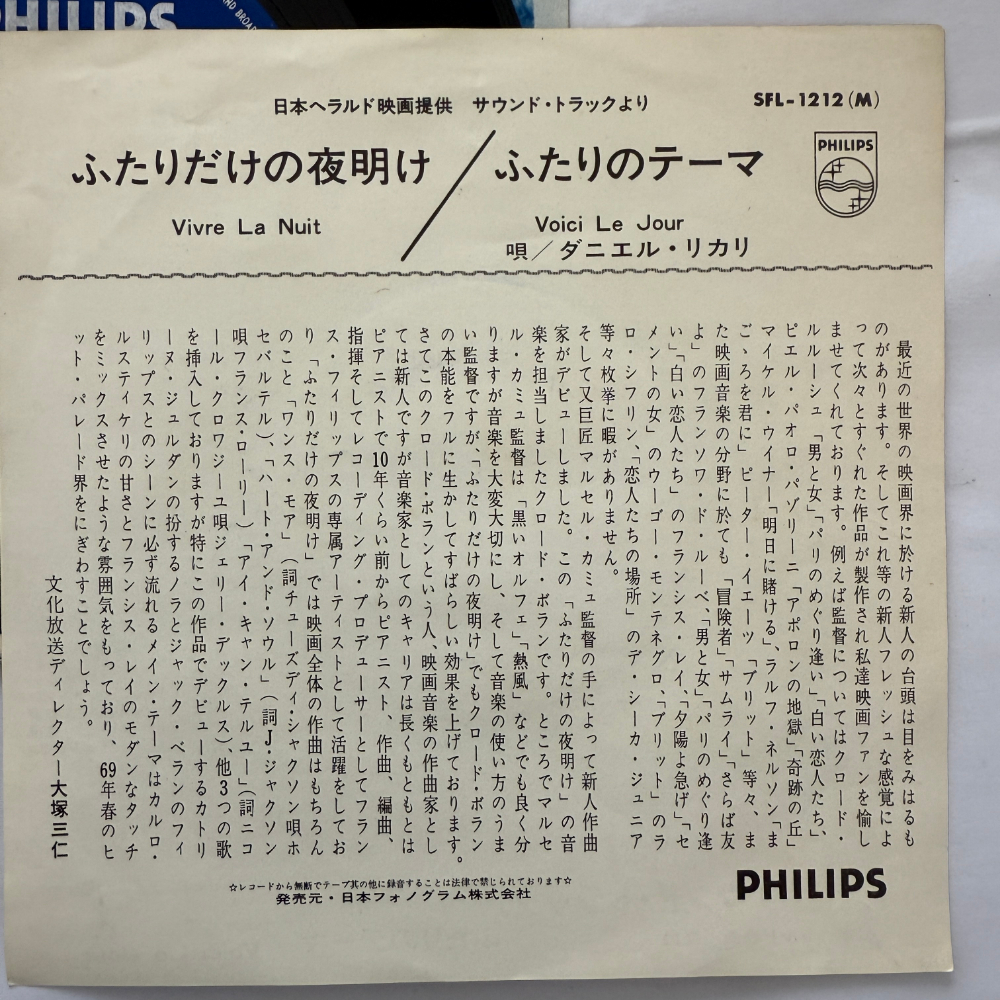 PHILIPS
日本ヘラルド映画提供 サウンド・トラックより
SFL-1212(M)
ふたりだけの夜明け／ふたりのテーマ
PHILIPS
Vivre La Nuit
Voici Le Jour
唄／ダニエル・リカリ
最近の世界の映画界に於ける新人の台頭は目をみはるも
のがあります。そしてこれ等の新人フレッシュな感覚によ
って次々とすぐれた作品が製作され私達映画ファンを愉し
ませてくれております。例えば監督についてはクロード・
ルルーシュ「男と女」「パリのめぐり逢い」「白い恋人たち」、
ピエル・パオロ・パゾリーニ「アポロンの地獄」「奇跡の丘」
マイケル・ウイナー「明日に賭ける」、ラルフ・ネルソン「ま
ごゝろを君に」ピーター・イエーツ「ブリット」等々、ま
た映画音楽の分野に於ても「冒険者」「サムライ」「さらば友
よ」のフランソワ・ド・ルーベ、「男と女」「パリのめぐり逢
い」「白い恋人たち」のフランシス・レイ、「夕陽よ急げ」「セ
メントの女」のウーゴー・モンテネグロ、「ブリット」のラ
ロ・シフリン、「恋人たちの場所」のデ・シーカ・ジュニア
等々枚挙に暇がありません。
そして又巨匠マルセル・カミュ監督の手によって新人作曲
家がデビューしました。この「ふたりだけの夜明け」の音
楽を担当しましたクロード・ボランです。ところでマルセ
ル・カミュ監督は「黒いオルフェ」「熱風」などでも良く分
りますが音楽を大変大切にし、そして音楽の使い方のうま
い監督ですが、「ふたりだけの夜明け」でもクロード・ボラン
の本能をフルに生かしてすばらしい効果を上げております。
さてこのクロード・ボランという人、映画音楽の作曲家とし
ては新人ですが音楽家としてのキャリアは長くもともとは
ピアニストで10年くらい前からピアニスト、作曲、編曲、
指揮そしてレコーディング・プロデューサーとしてフラン
ス・フィリップスの専属アーティストとして活躍をしてお
り「ふたりだけの夜明け」では映画全体の作曲はもちろん
のこと「ワンス・モア」（詞チューズディ・ジャクソン唄ホ
セバルテル）、「ハート・アンド・ソウル」（詞J・ジャクソン
唄フランス・ローリー）「アイ・キャン・テルユー」（詞ニコ
ール・クロワジーユ唄ジェリー・デックルス）、他3つの歌
を挿入しておりますが特にこの作品でデビューするカトリ
ーヌ・ジュルダンの扮するノラとジャック・ペランのフィ
リップスとのシーンに必ず流れるメイン・テーマはカルロ・
ルスティケリの甘さとフランシス・レイのモダンなタッチ
をミックスさせたような雰囲気をもっており、69年春のヒ
ット・パレード界をにぎわすことでしょう。
文化放送ディレクター大塚三仁
☆レコードから無断でテープ其の他に録音することは法律で禁じられております☆
発売元・日本フォノグラム株式会社
PHILIPS